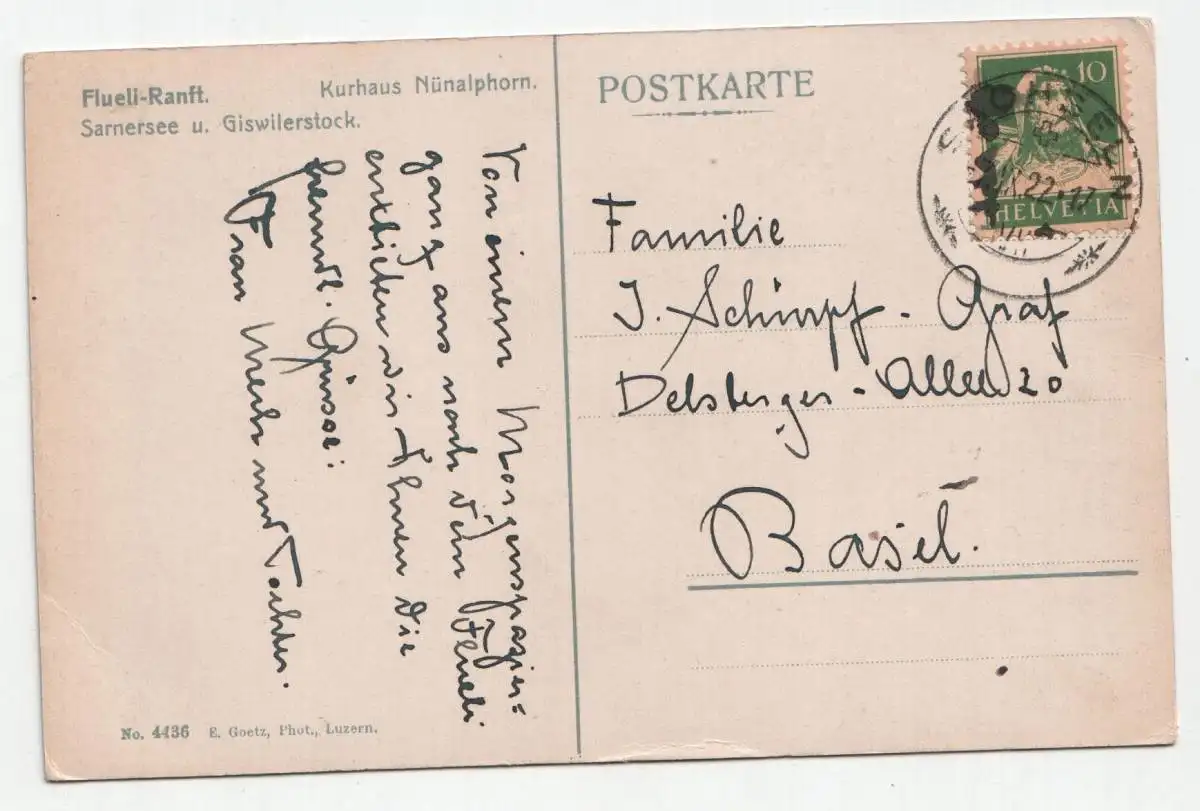 Flueli-Ranft. Kurhaus Nünalphorn.
Sarnersee u. Giswilerstock.
Von einem Morgenspazier=
gang aus nach dem Flueli
entbieten wir Ihnen die
freundl. Grüsse:
Frau und Tochter.
No. 4436 E. Goetz, Phot., Luzern.
POSTKARTE
10
HELVETIA
SACHSELN
22
Familie
J. Schimpf - Graf
Delsberger - Allee 20
Basel.